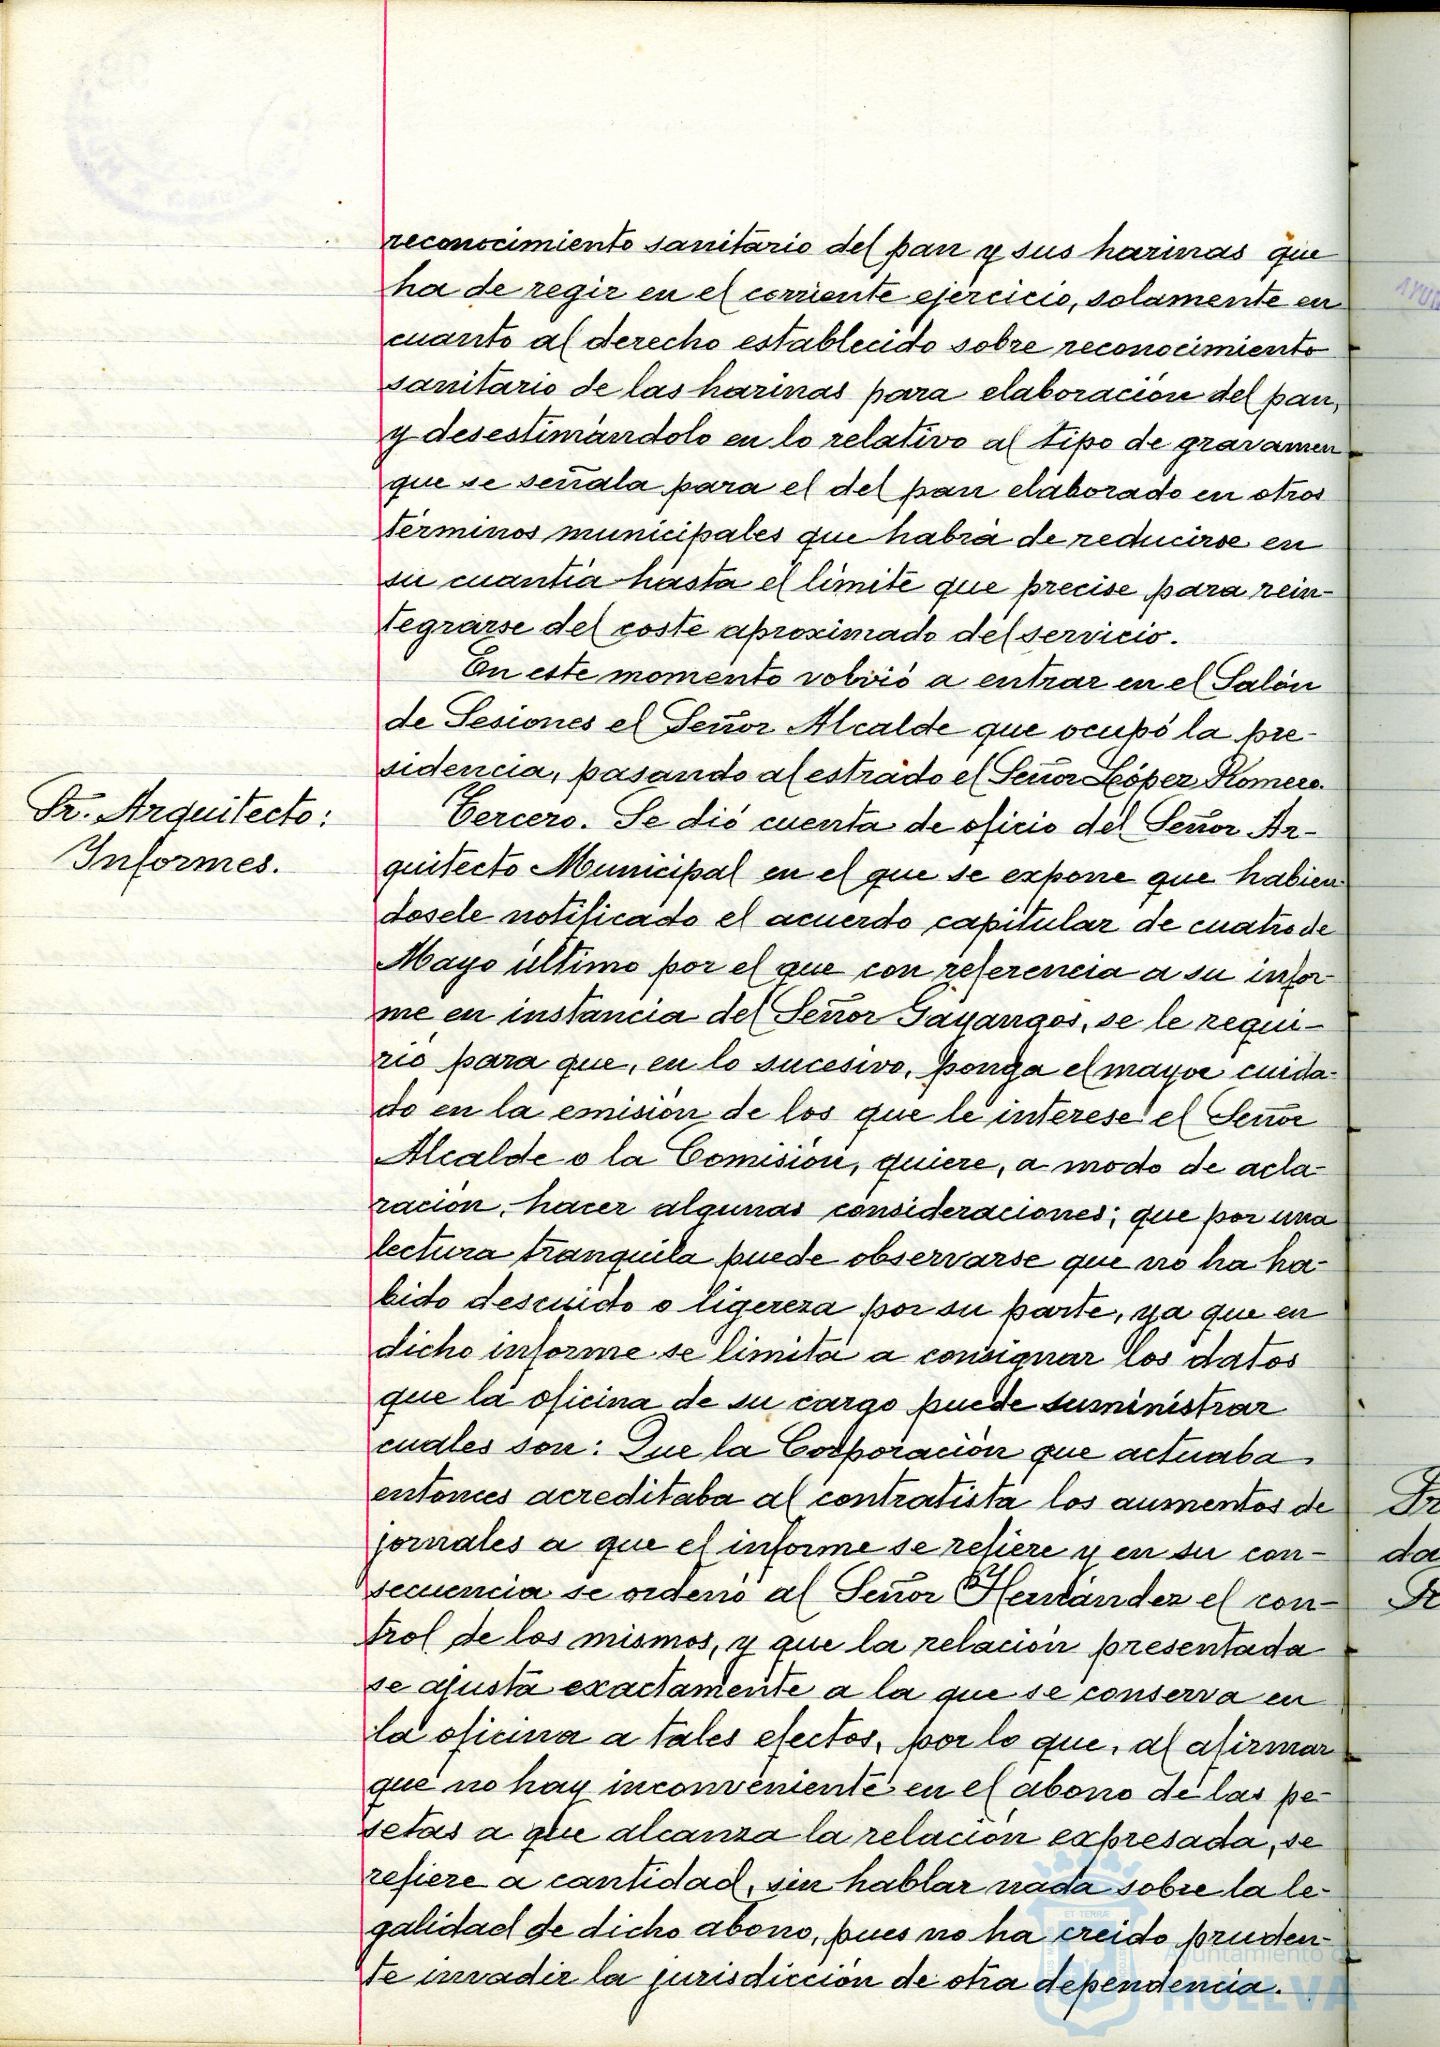 reconocimiento sanitario del pan y sus harinas que
ha de regir en el corriente ejercicio, solamente en
cuanto al derecho establecido sobre reconocimiento
sanitario de las harinas para elaboración del pan,
y desestimándolo en lo relativo al tipo de gravamen
que se señala para el del pan elaborado en otros
términos municipales que habrá de reducirse en
su cuantía hasta el límite que precise para rein-
tegrarse del coste aproximado del servicio.
En este momento volvió a entrar en el Salón
de Sesiones el Señor Alcalde que ocupó la pre-
sidencia, pasando al estrado el Señor López Romero.
Sr. Arquitecto:
Informes.
Tercero. Se dió cuenta de oficio del Señor Ar-
quitecto Municipal en el que se expone que habien
dosele notificado el acuerdo capitular de cuatro de
Mayo último por el que con referencia a su infor-
me en instancia del Señor Gayangos, se le requi-
rió para que, en lo sucesivo, ponga el mayor cuida-
do en la emisión de los que le interese el Señor
Alcalde o la Comisión, quiere, a modo de acla-
ración, hacer algunas consideraciones; que por una
lectura tranquila puede observarse que no ha ha-
bido descuido o ligereza por su parte, ya que en
dicho informe se limita a consignar los datos
que la oficina de su cargo puede suministrar
cuales son: Que la Corporación que actuaba
entonces acreditaba al contratista los aumentos de
jornales a que el informe se refiere y en su con-
secuencia se ordenó al Señor Hernández el con-
trol de los mismos, y que la relación presentada
se ajusta exactamente a la que se conserva en
la oficina a tales efectos, por lo que, al afirmar
que no hay inconveniente en el abono de las pe-
setas a que alcanza la relación expresada, se
refiere a cantidad, sin hablar nada sobre la le-
galidad de dicho abono, pues no ha creido pruden-
te invadir la jurisdicción de otra dependencia.
Ayuntamiento de
HUELVA